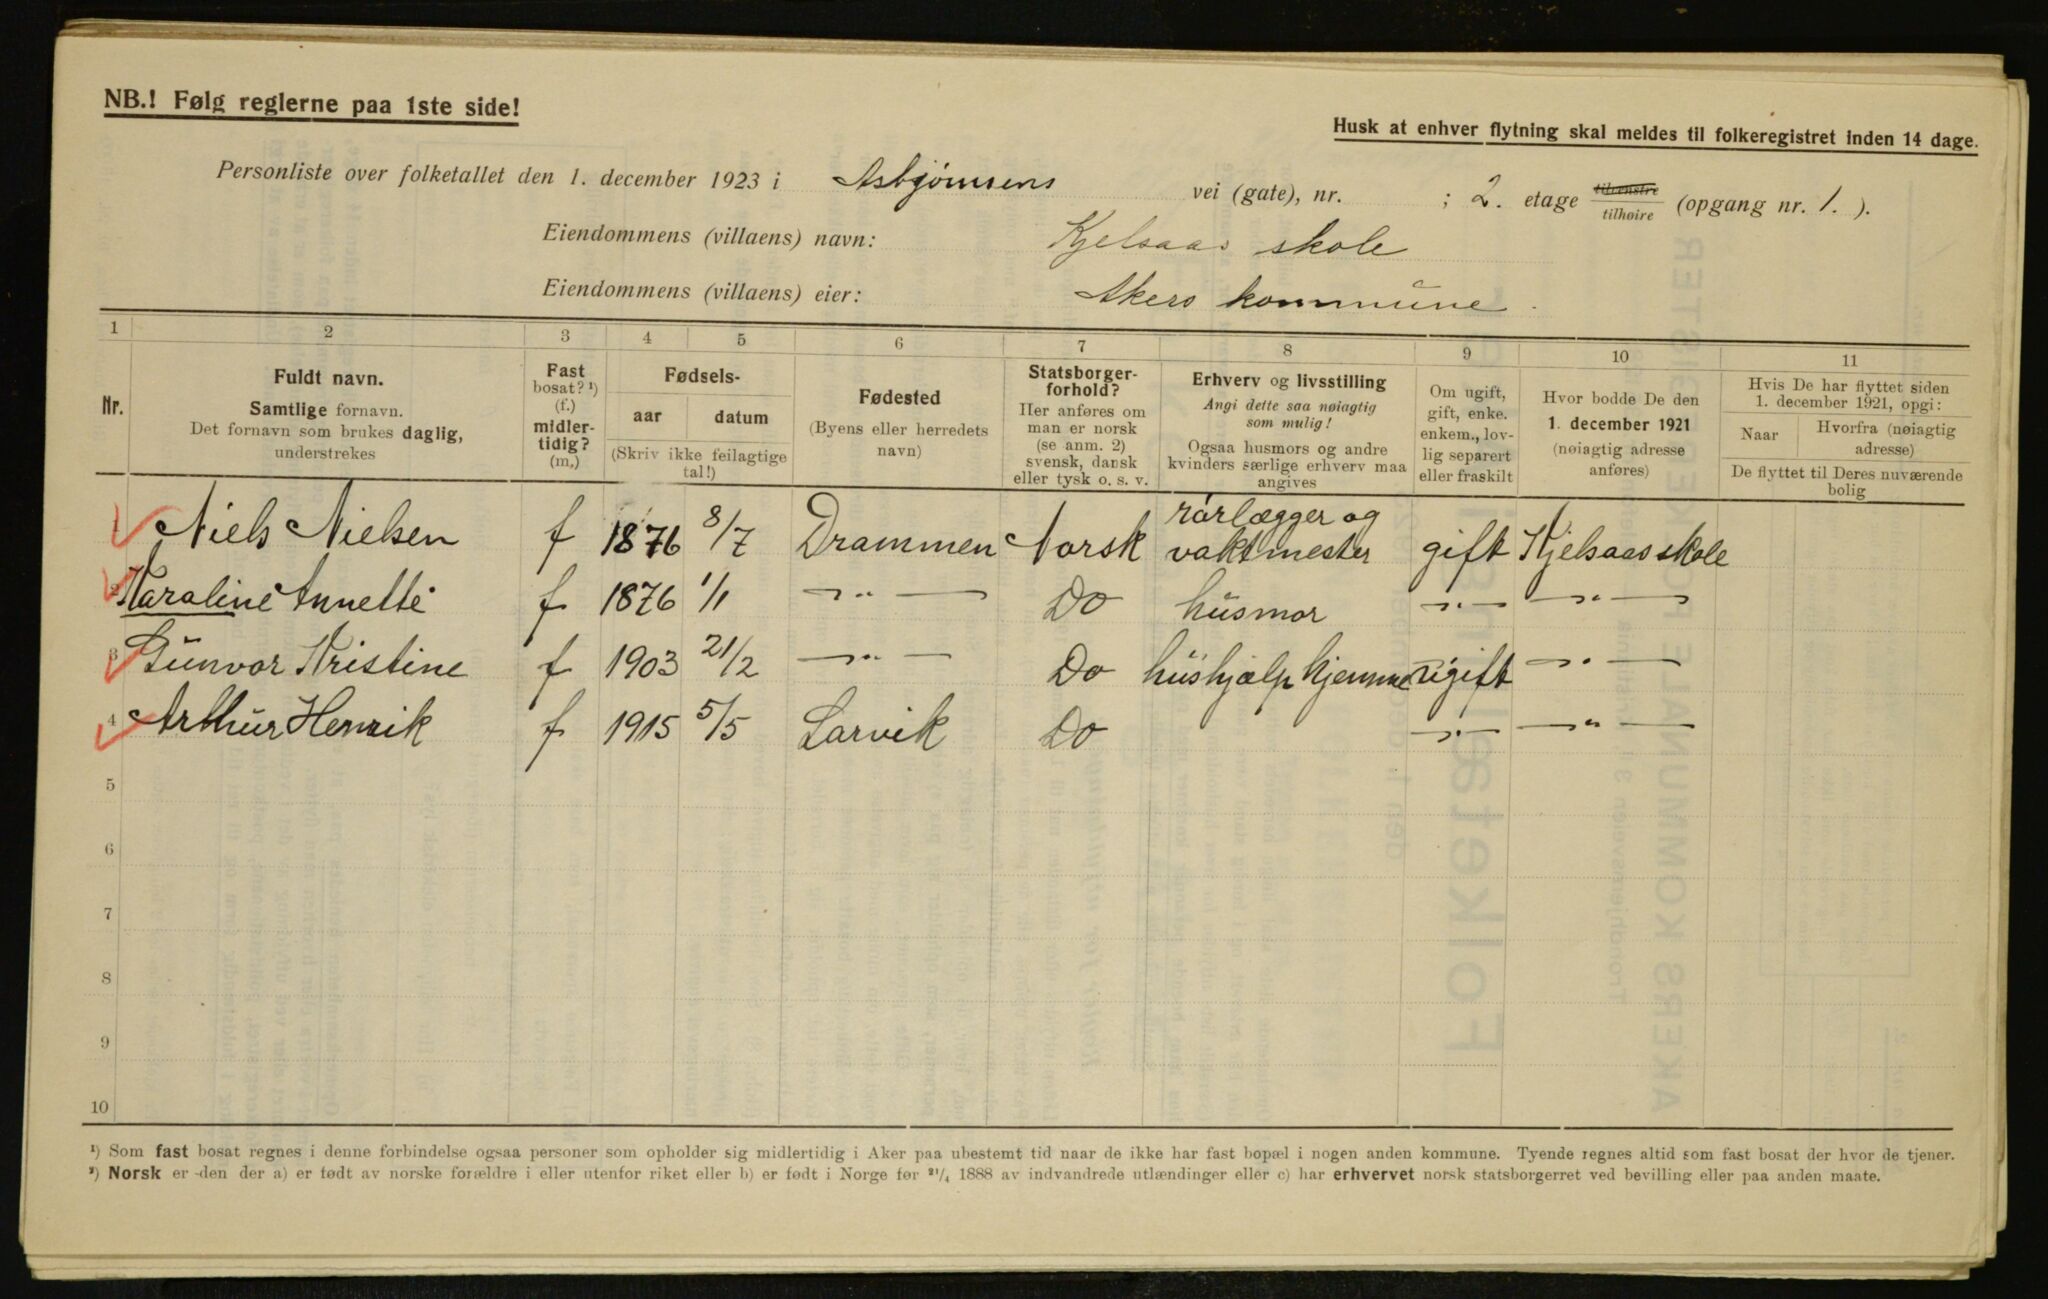 NB.! Følg reglerne paa 1ste side!
Husk at enhver flytning skal meldes til folkeregistret inden 14 dage.
Personliste over folketallet den 1. december 1923 i Asbjørnsens vei (gate), nr. ; 2. etage tilvenstre tilhøire (opgang nr. 1. ).
Eiendommens (villaens) navn: Kjelsaas skole
Eiendommens (villaens) eier: Akers kommune
1 2 3 4 5 6 7 8 9 10 11
Nr.
Fuldt navn.
Samtlige fornavn.
Det fornavn som brukes daglig,
understrekes
Fast
bosat? ¹)
(f.)
midler-
tidig?
(m.)
Fødsels-
aar datum
(Skriv ikke feilagtige
tal!)
Fødested
(Byens eller herredets
navn)
Statsborger-
forhold?
Her anføres om
man er norsk
(se anm. 2)
svensk, dansk
eller tysk o. s. v.
Erhverv og livsstilling
Angi dette saa nøiagtig
som mulig!
Ogsaa husmors og andre
kvinders særlige erhverv maa
angives
Om ugift,
gift, enke.
enkem., lov-
lig separert
eller fraskilt
Hvor bodde De den
1. december 1921
(nøiagtig adresse
anføres)
Hvis De har flyttet siden
1. december 1921, opgi:
Naar Hvorfra (nøiagtig
adresse)
De flyttet til Deres nuværende
bolig
1 Niels Nielsen f 1876 8/7 Drammen Norsk rørlægger og vaktmester gift Kjelsaas skole
2 Karaline Annette f 1876 1/1 —"— Do husmor —"— —"—
3 Gunvor Kristine f 1903 21/2 —"— Do hushjælp hjemme ugift —"—
4 Arthur Henrik f 1915 5/5 Larvik Do —"— —"—
5
6
7
8
9
10
¹) Som fast bosat regnes i denne forbindelse ogsaa personer som opholder sig midlertidig i Aker paa ubestemt tid naar de ikke har fast bopæl i nogen anden kommune. Tyende regnes altid som fast bosat der hvor de tjener.
²) Norsk er den der a) er født av norske forældre i eller utenfor riket eller b) er født i Norge før ²¹/₄ 1888 av indvandrede utlændinger eller c) har erhvervet norsk statsborgerret ved bevilling eller paa anden maate.